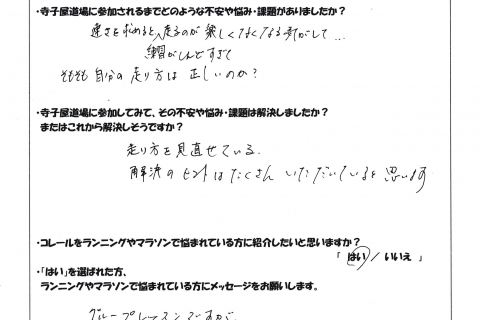 ・寺子屋道場に参加されるまでどのような不安や悩み・課題がありましたか？
速さを求めると、走るのが楽しくなくなる気がして…
練習がしんどすぎて
そもそも自分の走り方は正しいのか？
・寺子屋道場に参加してみて、その不安や悩み・課題は解決しましたか？
またはこれから解決しそうですか？
走り方を見直せている。
解決のヒントはたくさんいただいていると思います
・コレールをランニングやマラソンで悩まれている方に紹介したいと思いますか？
「 はい ／ いいえ 」
・「はい」を選ばれた方、
ランニングやマラソンで悩まれている方にメッセージをお願いします。
グループレッスンですが、